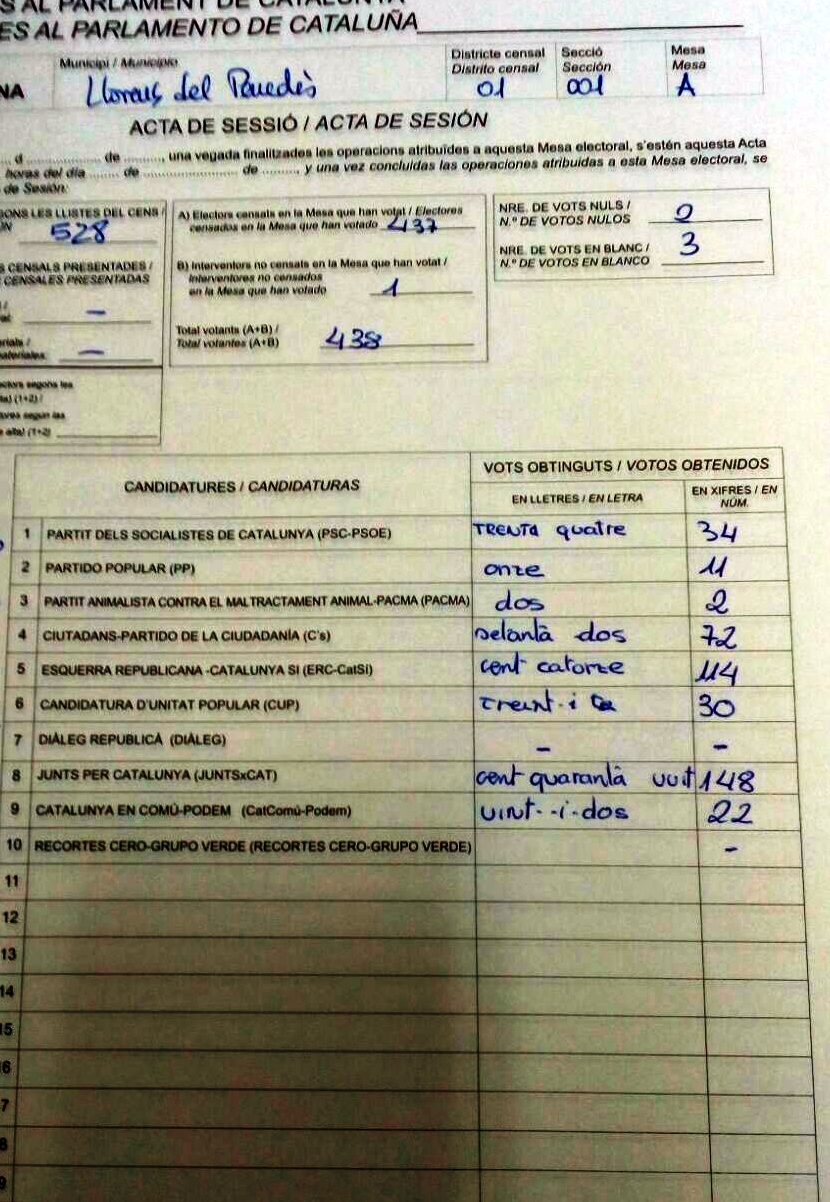 S AL PARLAMENT DE CATALUNYA
ES AL PARLAMENTO DE CATALUÑA
Municipi / Municipio
NA Llorens del Penedès
Districte censal
Distrito censal
01
Secció
Sección
001
Mesa
Mesa
A
ACTA DE SESSIÓ / ACTA DE SESIÓN
d de , una vegada finalitzades les operacions atribuïdes a aquesta Mesa electoral, s'estén aquesta Acta
horas del día de de , y una vez concluidas las operaciones atribuidas a esta Mesa electoral, se
de Sesión:
ONS LES LLISTES DEL CENS /
528
S CENSALS PRESENTADES /
CENSALES PRESENTADAS
–
–
ectors segons les
(1+2) /
ores según las
(1+2)
A) Electors censats en la Mesa que han votat / Electores
censados en la Mesa que han votado 437
B) Interventors no censats en la Mesa que han votat /
Interventores no censados
en la Mesa que han votado 1
Total votants (A+B) /
Total votantes (A+B) 438
NRE. DE VOTS NULS /
N.º DE VOTOS NULOS 0
NRE. DE VOTS EN BLANC /
N.º DE VOTOS EN BLANCO 3
CANDIDATURES / CANDIDATURAS
VOTS OBTINGUTS / VOTOS OBTENIDOS
EN LLETRES / EN LETRA
EN XIFRES / EN
NÚM.
1 PARTIT DELS SOCIALISTES DE CATALUNYA (PSC-PSOE) TRENTA quatre 34
2 PARTIDO POPULAR (PP) onze 11
3 PARTIT ANIMALISTA CONTRA EL MALTRACTAMENT ANIMAL-PACMA (PACMA) dos 2
4 CIUTADANS-PARTIDO DE LA CIUDADANÍA (C's) setantà dos 72
5 ESQUERRA REPUBLICANA -CATALUNYA SI (ERC-CatSí) cent catorze 114
6 CANDIDATURA D'UNITAT POPULAR (CUP) 30
7 DIÀLEG REPUBLICÀ (DIÀLEG) – –
8 JUNTS PER CATALUNYA (JUNTSxCAT) cent quarantà vuit 148
9 CATALUNYA EN COMÚ-PODEM (CatComú-Podem) vint--i-dos 22
10 RECORTES CERO-GRUPO VERDE (RECORTES CERO-GRUPO VERDE) –
11
12
13
14
15
6
7
8
9